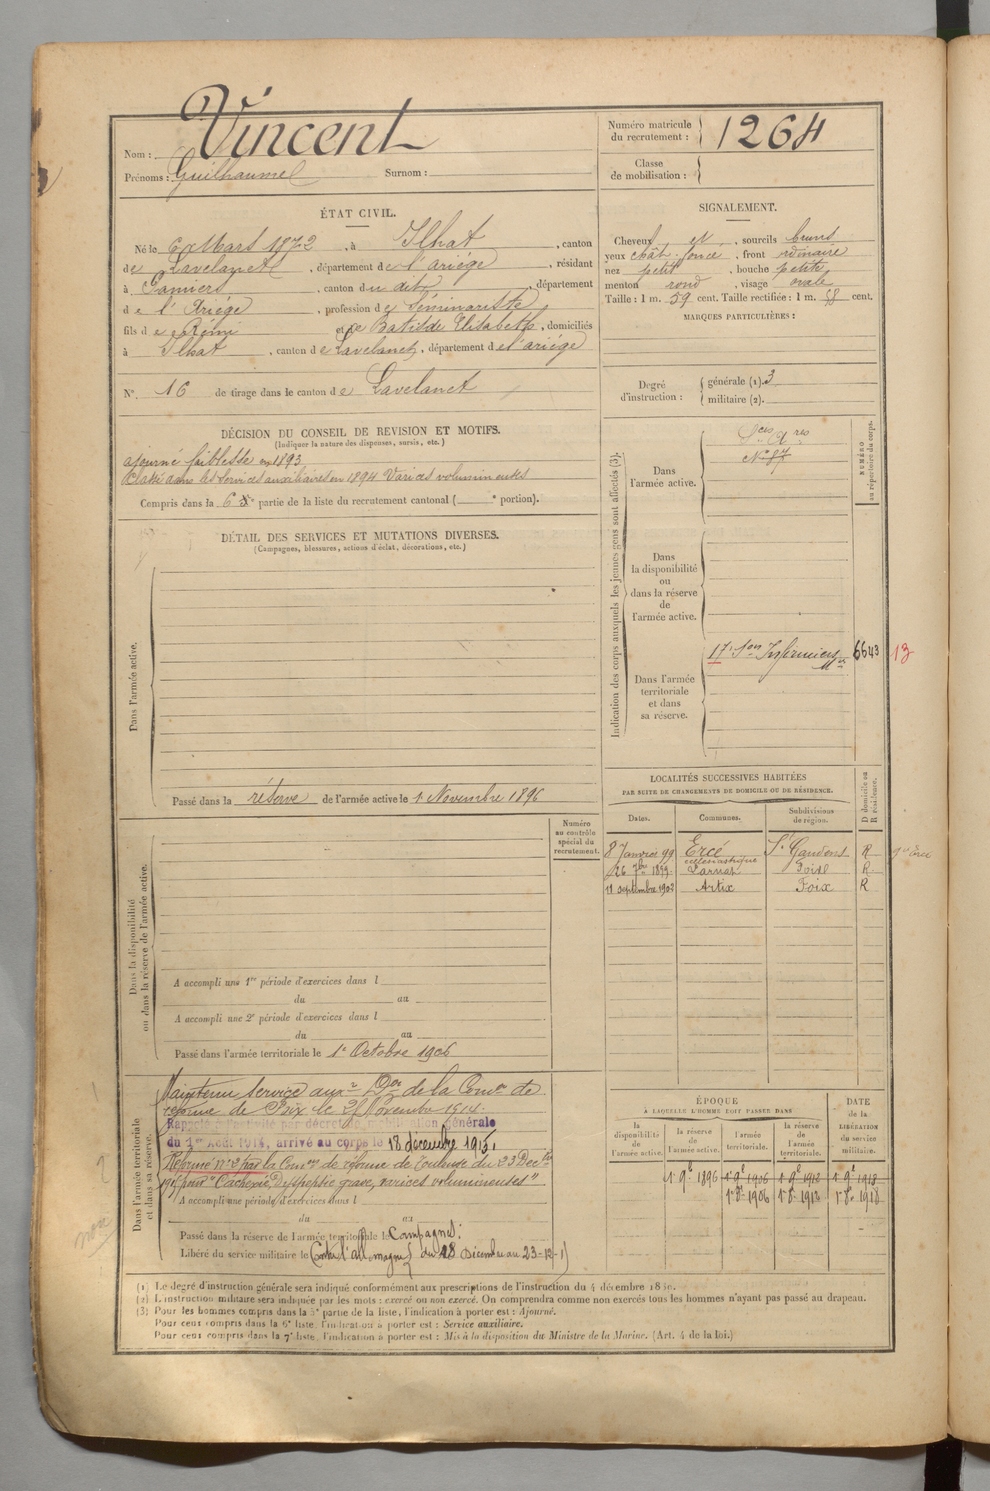 Nom : Vincent
Prénoms : Guilhaume Surnom :
Numéro matricule du recrutement : 1264
Classe de mobilisation :
ÉTAT CIVIL.
Né le 6 Mars 1872, à Ilhat, canton
de Lavelanet, département de l'ariége, résidant
à Pamiers, canton du dit, département
de l'Ariége, profession de Séminariste
fils de Rémi et de Batilde Elisabeth, domiciliés
à Ilhat, canton de Lavelanet, département de l'ariége
N°. 16 de tirage dans le canton de Lavelanet
SIGNALEMENT.
Cheveux et, sourcils bruns
yeux chât. foncé, front ordinaire
nez petit, bouche petite
menton rond, visage ovale
Taille : 1 m. 59 cent. Taille rectifiée : 1 m. 58 cent.
MARQUES PARTICULIÈRES :
Degré d'instruction :
générale (1). 3
militaire (2).
DÉCISION DU CONSEIL DE REVISION ET MOTIFS.
(Indiquer la nature des dispenses, sursis, etc.)
ajourné faiblesse en 1893
Classé dans les services auxiliaires en 1894 Varices volumineuses
Compris dans la 6e partie de la liste du recrutement cantonal ( e portion).
DÉTAIL DES SERVICES ET MUTATIONS DIVERSES.
(Campagnes, blessures, actions d'éclat, décorations, etc.)
Dans l'armée active.
Passé dans la réserve de l'armée active le 1 Novembre 1896
Numéro au contrôle spécial du recrutement.
Dans la disponibilité ou dans la réserve de l'armée active.
A accompli une 1re période d'exercices dans l
du au
A accompli une 2e période d'exercices dans l
du au
Passé dans l'armée territoriale le 1er Octobre 1906
Dans l'armée territoriale et dans sa réserve.
Maintenu service auxre Don de la Comon de
réforme de Foix le 21 Novembre 1914.
Rappelé à l'activité par décret de mobilisation générale
du 1er Août 1914, arrivé au corps le 18 décembre 1915,
Réformé n° 2 par la Comon de réforme de Toulouse du 23 Decbre
1915 pour "Cachexie, Dyspepsie grave, varices volumineuses"
A accompli une période d'exercices dans l
du au
Passé dans la réserve de l'armée territoriale le
Campagnes :
Libéré du service militaire le
Contre l'allemagne du 18 Décembre au 23-12-1
Indication des corps auxquels les jeunes gens sont affectés (3).
NUMÉRO au répertoire du corps.
Dans l'armée active.
Sces Ares
N° 87
Dans la disponibilité ou dans la réserve de l'armée active.
Dans l'armée territoriale et dans sa réserve.
17e Son Infirmiers Mres 6643 13
LOCALITÉS SUCCESSIVES HABITÉES
PAR SUITE DE CHANGEMENTS DE DOMICILE OU DE RÉSIDENCE.
Dates. Communes. Subdivisions de région. D domicile ou R résidence.
8 Janvier 99 Ercé St Gaudens R
ecclésiastique
26 7bre 1899 Larnat Foix R.
11 septembre 1903 Artix Foix R
ÉPOQUE
À LAQUELLE L'HOMME DOIT PASSER DANS
la disponibilité de l'armée active.
la réserve de l'armée active.
l'armée territoriale.
la réserve de l'armée territoriale.
DATE de la LIBÉRATION du service militaire.
1er 9e 1896 1er 9e 1906 1er 9e 1912 1er 9e 1918
1er 8e 1906 1er 8e 1912 1er 8e 1918
(1) Le degré d'instruction générale sera indiqué conformément aux prescriptions de l'instruction du 4 décembre 18
(2) L'instruction militaire sera indiquée par les mots : exercé ou non exercé. On comprendra comme non exercés tous les hommes n'ayant pas passé au drapeau.
(3) Pour les hommes compris dans la 5e partie de la liste, l'indication à porter est : Ajourné.
Pour ceux compris dans la 6e liste, l'indication à porter est : Service auxiliaire.
Pour ceux compris dans la 7e liste, l'indication à porter est : Mis à la disposition du Ministre de la Marine. (Art. 4 de la loi.)